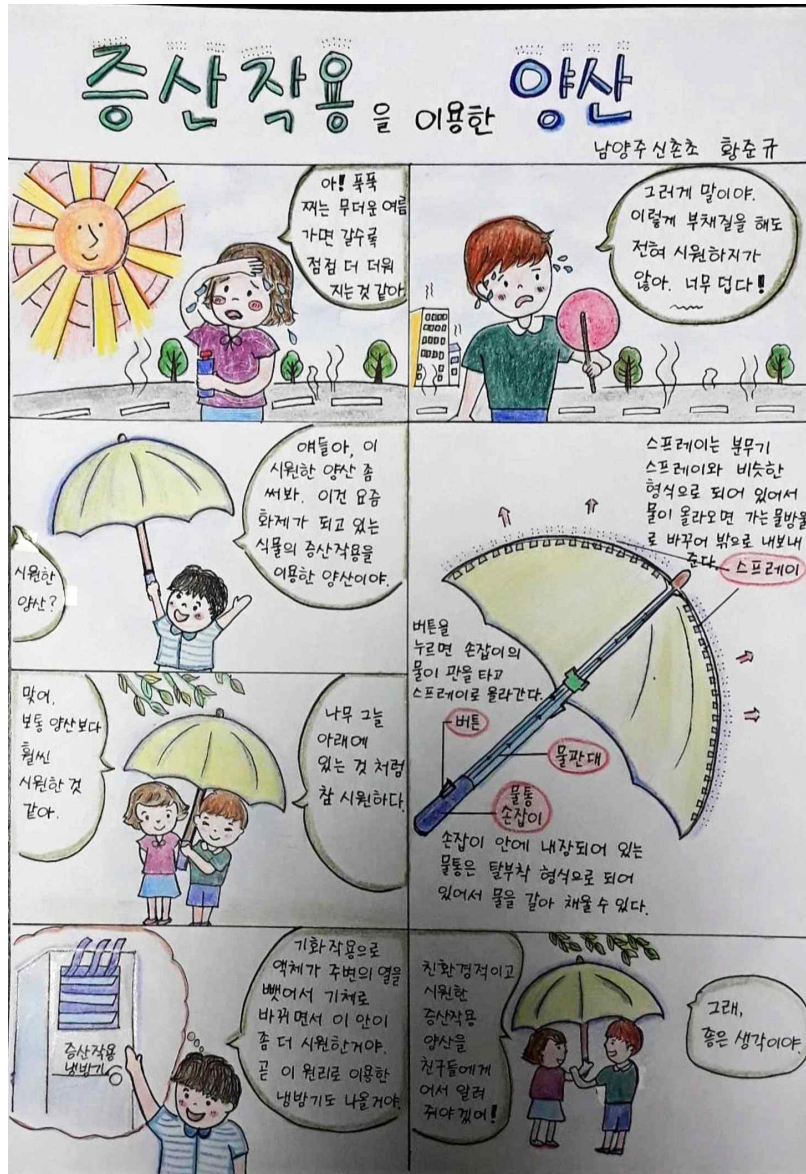 증산작용을 이용한 양산
남양주신촌초 황준규
아! 푹푹
찌는 무더운 여름
가면 갈수록
점점 더 더워
지는 것 같아
그러게 말이야.
이렇게 부채질을 해도
전혀 시원하지가
않아. 너무 덥다!
얘들아, 이
시원한 양산 좀
써봐. 이건 요즘
화제가 되고 있는
식물의 증산작용을
이용한 양산이야.
시원한
양산?
스프레이는 분무기
스프레이와 비슷한
형식으로 되어 있어서
물이 올라오면 가는 물방울
로 바꾸어 밖으로 내보내
준다.
스프레이
버튼을
누르면 손잡이의
물이 관을 타고
스프레이로 올라간다.
버튼
물관대
물통
손잡이
손잡이 안에 내장되어 있는
물통은 탈부착 형식으로 되어
있어서 물을 갈아 채울 수 있다.
맞어,
보통 양산보다
훨씬
시원한 것
같아.
나무 그늘
아래에
있는 것 처럼
참 시원하다.
기화작용으로
액체가 주변의 열을
뺏어서 기체로
바뀌면서 이 안이
좀 더 시원한거야.
곧 이 원리로 이용한
냉방기도 나올거야.
증산작용
냉방기
친환경적이고
시원한
증산작용
양산을
친구들에게
어서 알려
줘야겠어!
그래,
좋은 생각이야.